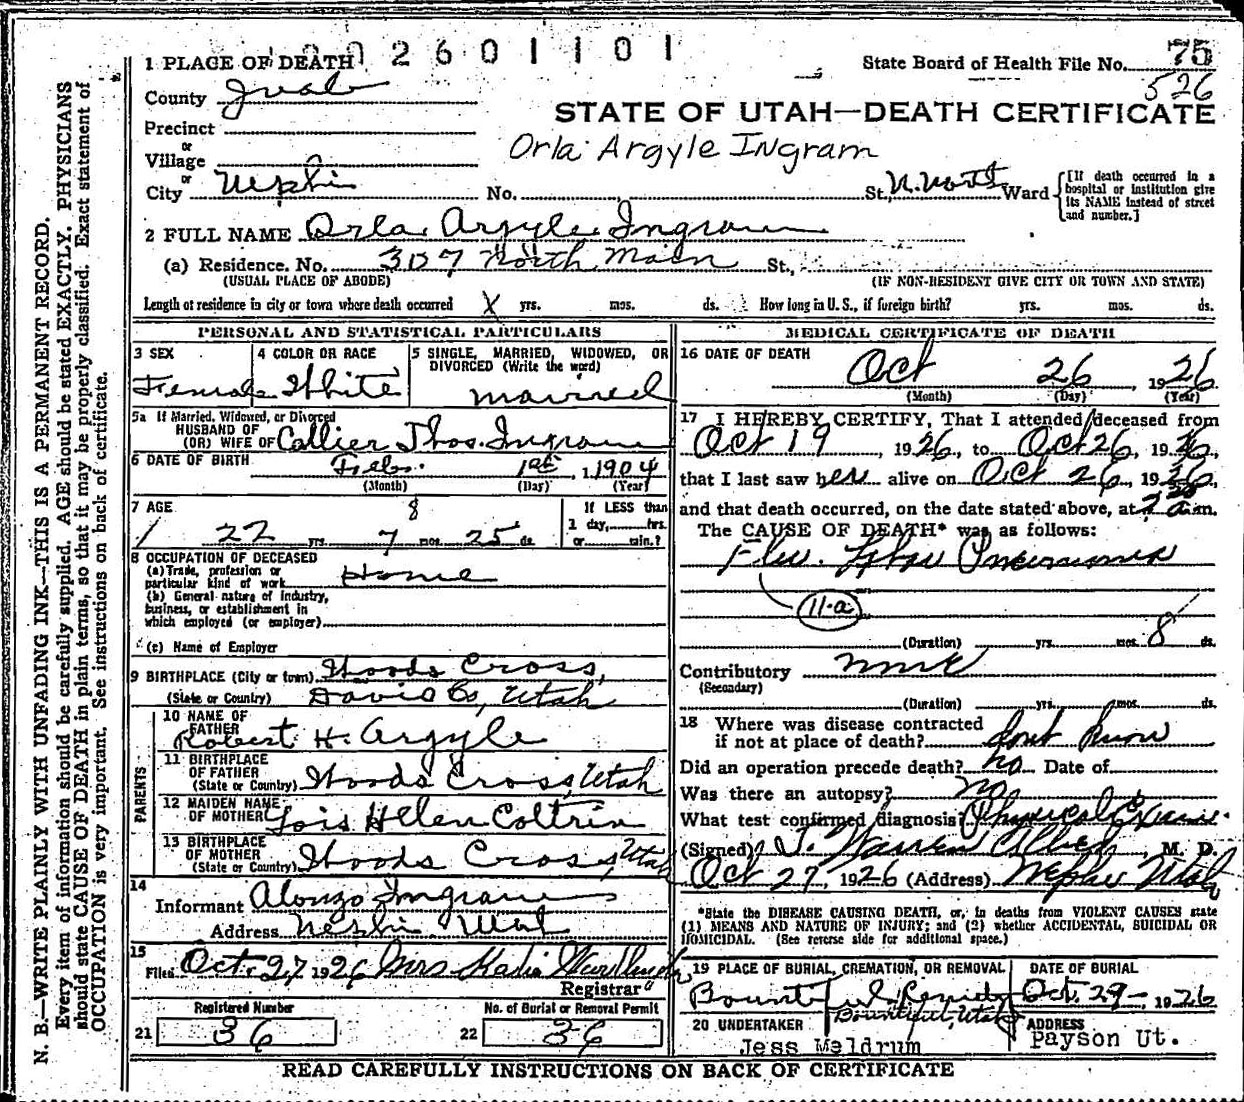 2 6 0 1 1 0 1
1 PLACE OF DEATH State Board of Health File No. 75
526
County Juab
STATE OF UTAH—DEATH CERTIFICATE
Precinct
or
Orla Argyle Ingram
Village
or
City Nephi No. St., Ward [If death occurred in a hospital or institution give its NAME instead of street and number.]
2 FULL NAME Orla Argyle Ingram
(a) Residence. No. 307 North Main St.,
(USUAL PLACE OF ABODE) (IF NON-RESIDENT GIVE CITY OR TOWN AND STATE)
Length of residence in city or town where death occurred X yrs. mos. ds. How long in U. S., if foreign birth? yrs. mos. ds.
PERSONAL AND STATISTICAL PARTICULARS
3 SEX 4 COLOR OR RACE 5 SINGLE, MARRIED, WIDOWED, OR
DIVORCED (Write the word)
Female White married
5a If Married, Widowed, or Divorced
HUSBAND OF
(OR) WIFE OF Collier Thos. Ingram
6 DATE OF BIRTH Feb. 1st 1 1904
(Month) (Day) (Year)
7 AGE 8 If LESS than
1 day, hrs.
22 yrs. 7 mos. 25 ds. or min.?
8 OCCUPATION OF DECEASED
(a) Trade, profession or
particular kind of work Home
(b) General nature of industry,
business, or establishment in
which employed (or employer)
(c) Name of Employer
9 BIRTHPLACE (City or town) Woods Cross,
(State or Country) Davis Co, Utah
PARENTS
10 NAME OF
FATHER
Robert H. Argyle
11 BIRTHPLACE
OF FATHER
(State or Country) Woods Cross, Utah
12 MAIDEN NAME
OF MOTHER Lois Helen Coltrin
13 BIRTHPLACE
OF MOTHER
(State or Country) Woods Cross, Utah
14
Informant Alonzo Ingram
Address Nephi Utah
15
Filed Oct. 27 1926 Mrs
Registrar
Registered Number No. of Burial or Removal Permit
21 36 22 36
MEDICAL CERTIFICATE OF DEATH
16 DATE OF DEATH
Oct 26, 1926
(Month) (Day) (Year)
17 I HEREBY CERTIFY, That I attended deceased from
Oct 19, 1926, to Oct 26, 1926,
that I last saw her alive on Oct 26, 1926,
and that death occurred, on the date stated above, at 2 a.m.
The CAUSE OF DEATH* was as follows:
Flu. Pneumonia
11-a
(Duration) yrs. mos. 8 ds.
Contributory none
(Secondary)
(Duration) yrs. mos. ds.
18 Where was disease contracted
if not at place of death? dont know
Did an operation precede death? no Date of
Was there an autopsy? no
What test confirmed diagnosis? Physical Exam.
(Signed) J. Warren Allred, M. D.
Oct 27, 1926 (Address) Nephi Utah
*State the DISEASE CAUSING DEATH, or, in deaths from VIOLENT CAUSES state
(1) MEANS AND NATURE OF INJURY; and (2) whether ACCIDENTAL, SUICIDAL OR
HOMICIDAL. (See reverse side for additional space.)
19 PLACE OF BURIAL, CREMATION, OR REMOVAL DATE OF BURIAL
Bountiful Oct. 29 - 1926
Bountiful, Utah
20 UNDERTAKER ADDRESS
Jess Meldrum Payson Ut.
READ CAREFULLY INSTRUCTIONS ON BACK OF CERTIFICATE
N. B.—WRITE PLAINLY WITH UNFADING INK—THIS IS A PERMANENT RECORD.
Every item of information should be carefully supplied. AGE should be stated EXACTLY. PHYSICIANS
should state CAUSE OF DEATH in plain terms, so that it may be properly classified. Exact statement of
OCCUPATION is very important. See instructions on back of certificate.